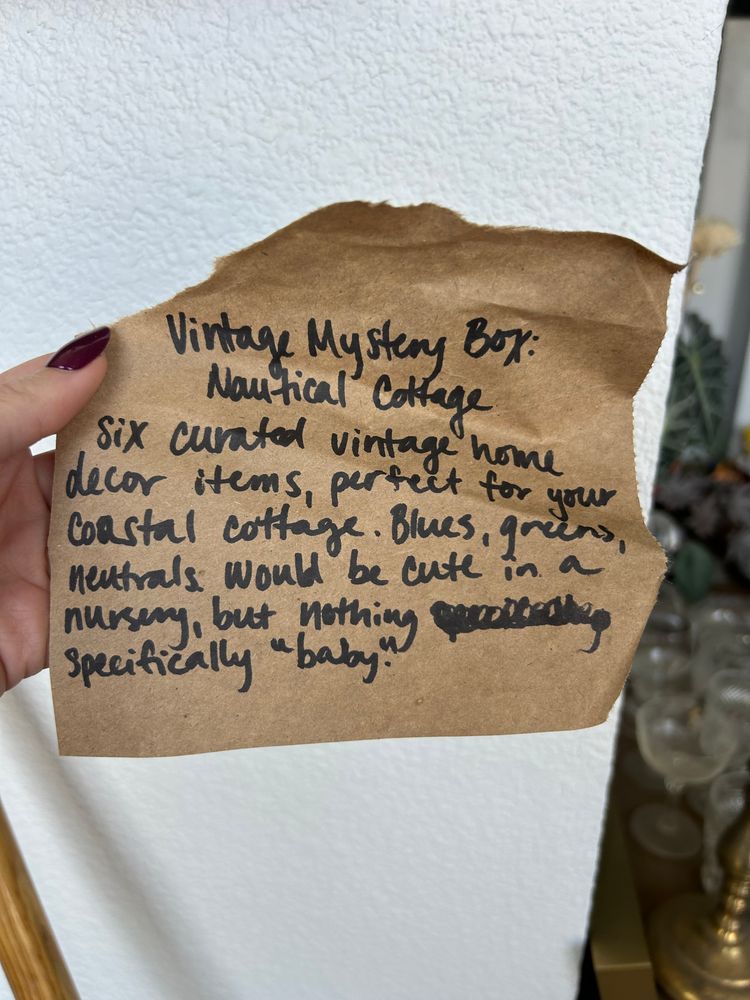 Vintage Mystery Box:
Nautical Cottage
Six curated vintage home
decor items, perfect for your
coastal cottage. Blues, greens,
neutrals. Would be cute in a
nursery, but nothing
specifically "baby."